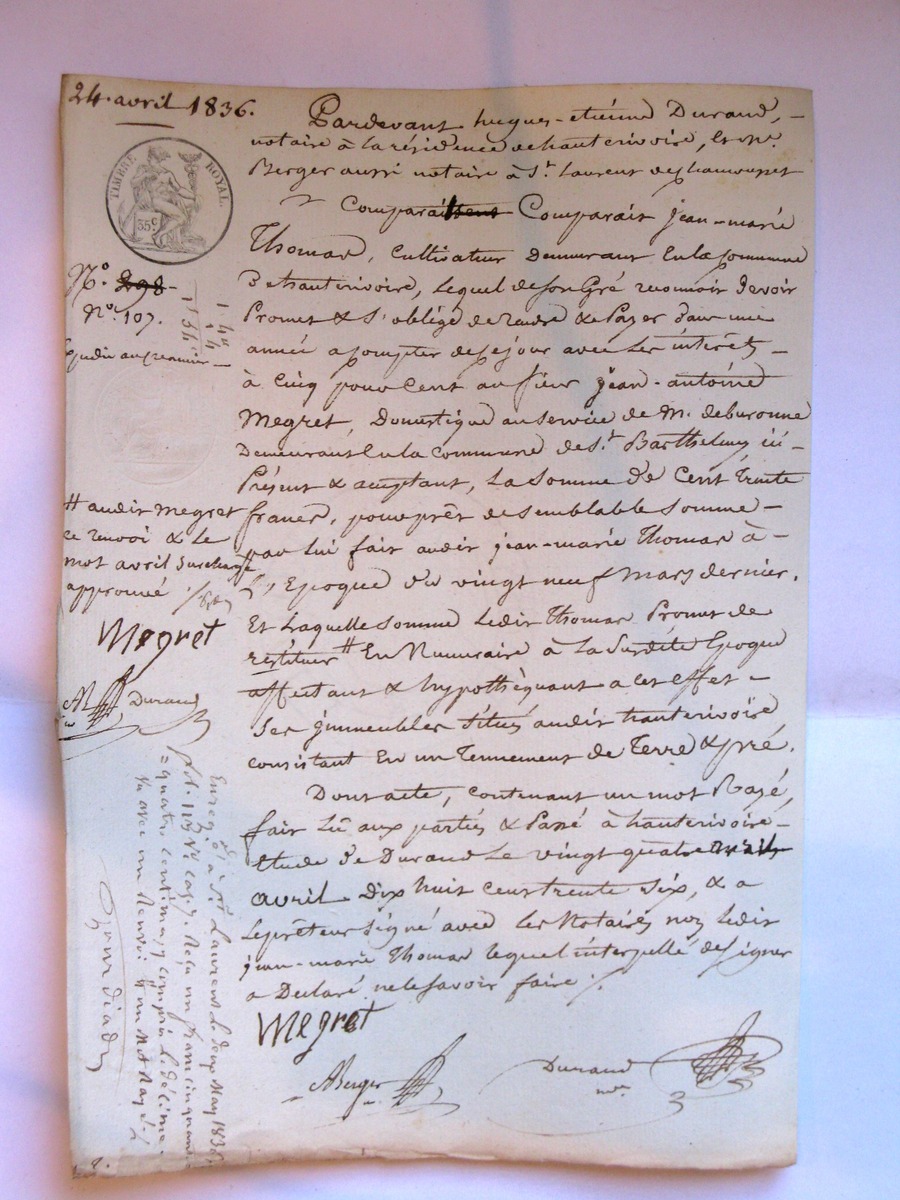 24. avril 1836.
Pardevant hugues-etiénne Durand,
notaire à la résidence de hauterivoire, & son
Berger aussi notaire à St. Laurent de chamousset
Comparaissent Comparait jean-marie
Thomas, cultivateur demeurant en la commune
D'hauterivoire, lequel de son Gré reconnoit devoir
Promet & s'oblige de rendre & Payer dans une
année a compter de ce jour avec les intérêts
à Cinq pour Cent au sieur jean-antoine
Megret, Domestique au service de M. deburonne
Demeurant en la commune de St. Barthelemy ici
Présent & acceptant, la somme de Cent trente
francs, pour prêt de semblable somme
par lui fait audit jean-marie Thomas à
L'Epoque du vingt neuf Mars dernier.
Et Laquelle somme ledit Thomas Promet de
restituer # En Numeraire à la Susdite Epoque
affectant & hypothèquant a cet effet
ses jmmeubles situés audit hauterivoire
consistant En un Tennement de Terre & pré.
Dont acte, contenant un mot Rayé,
fait Lû aux parties & Passé à hauterivoire
Etude de Durand Le vingt quatre avril
avril Dix huit cent trente six, & a
Le prêteur signé avec les Notaires non ledit
jean-marie Thomas lequel interpellé de signer
a Declaré ne le savoir faire ./.
Megret
ABerger
Durand
TIMBRE ROYAL.
35c
No. 298
No. 107.
Expedié au creancier
# audit Megret
ce renvoi & le
mot avril surchargé
approuvé ./.
Megret
AB
Durand
Enregé. à St. Laurent le deux May 1836,
fol. 113 Vo. Cas 7. Reçu un franc cinquante
quatre centimes y compris le décime
Vu avec un Renvoi & un Mot Rayé